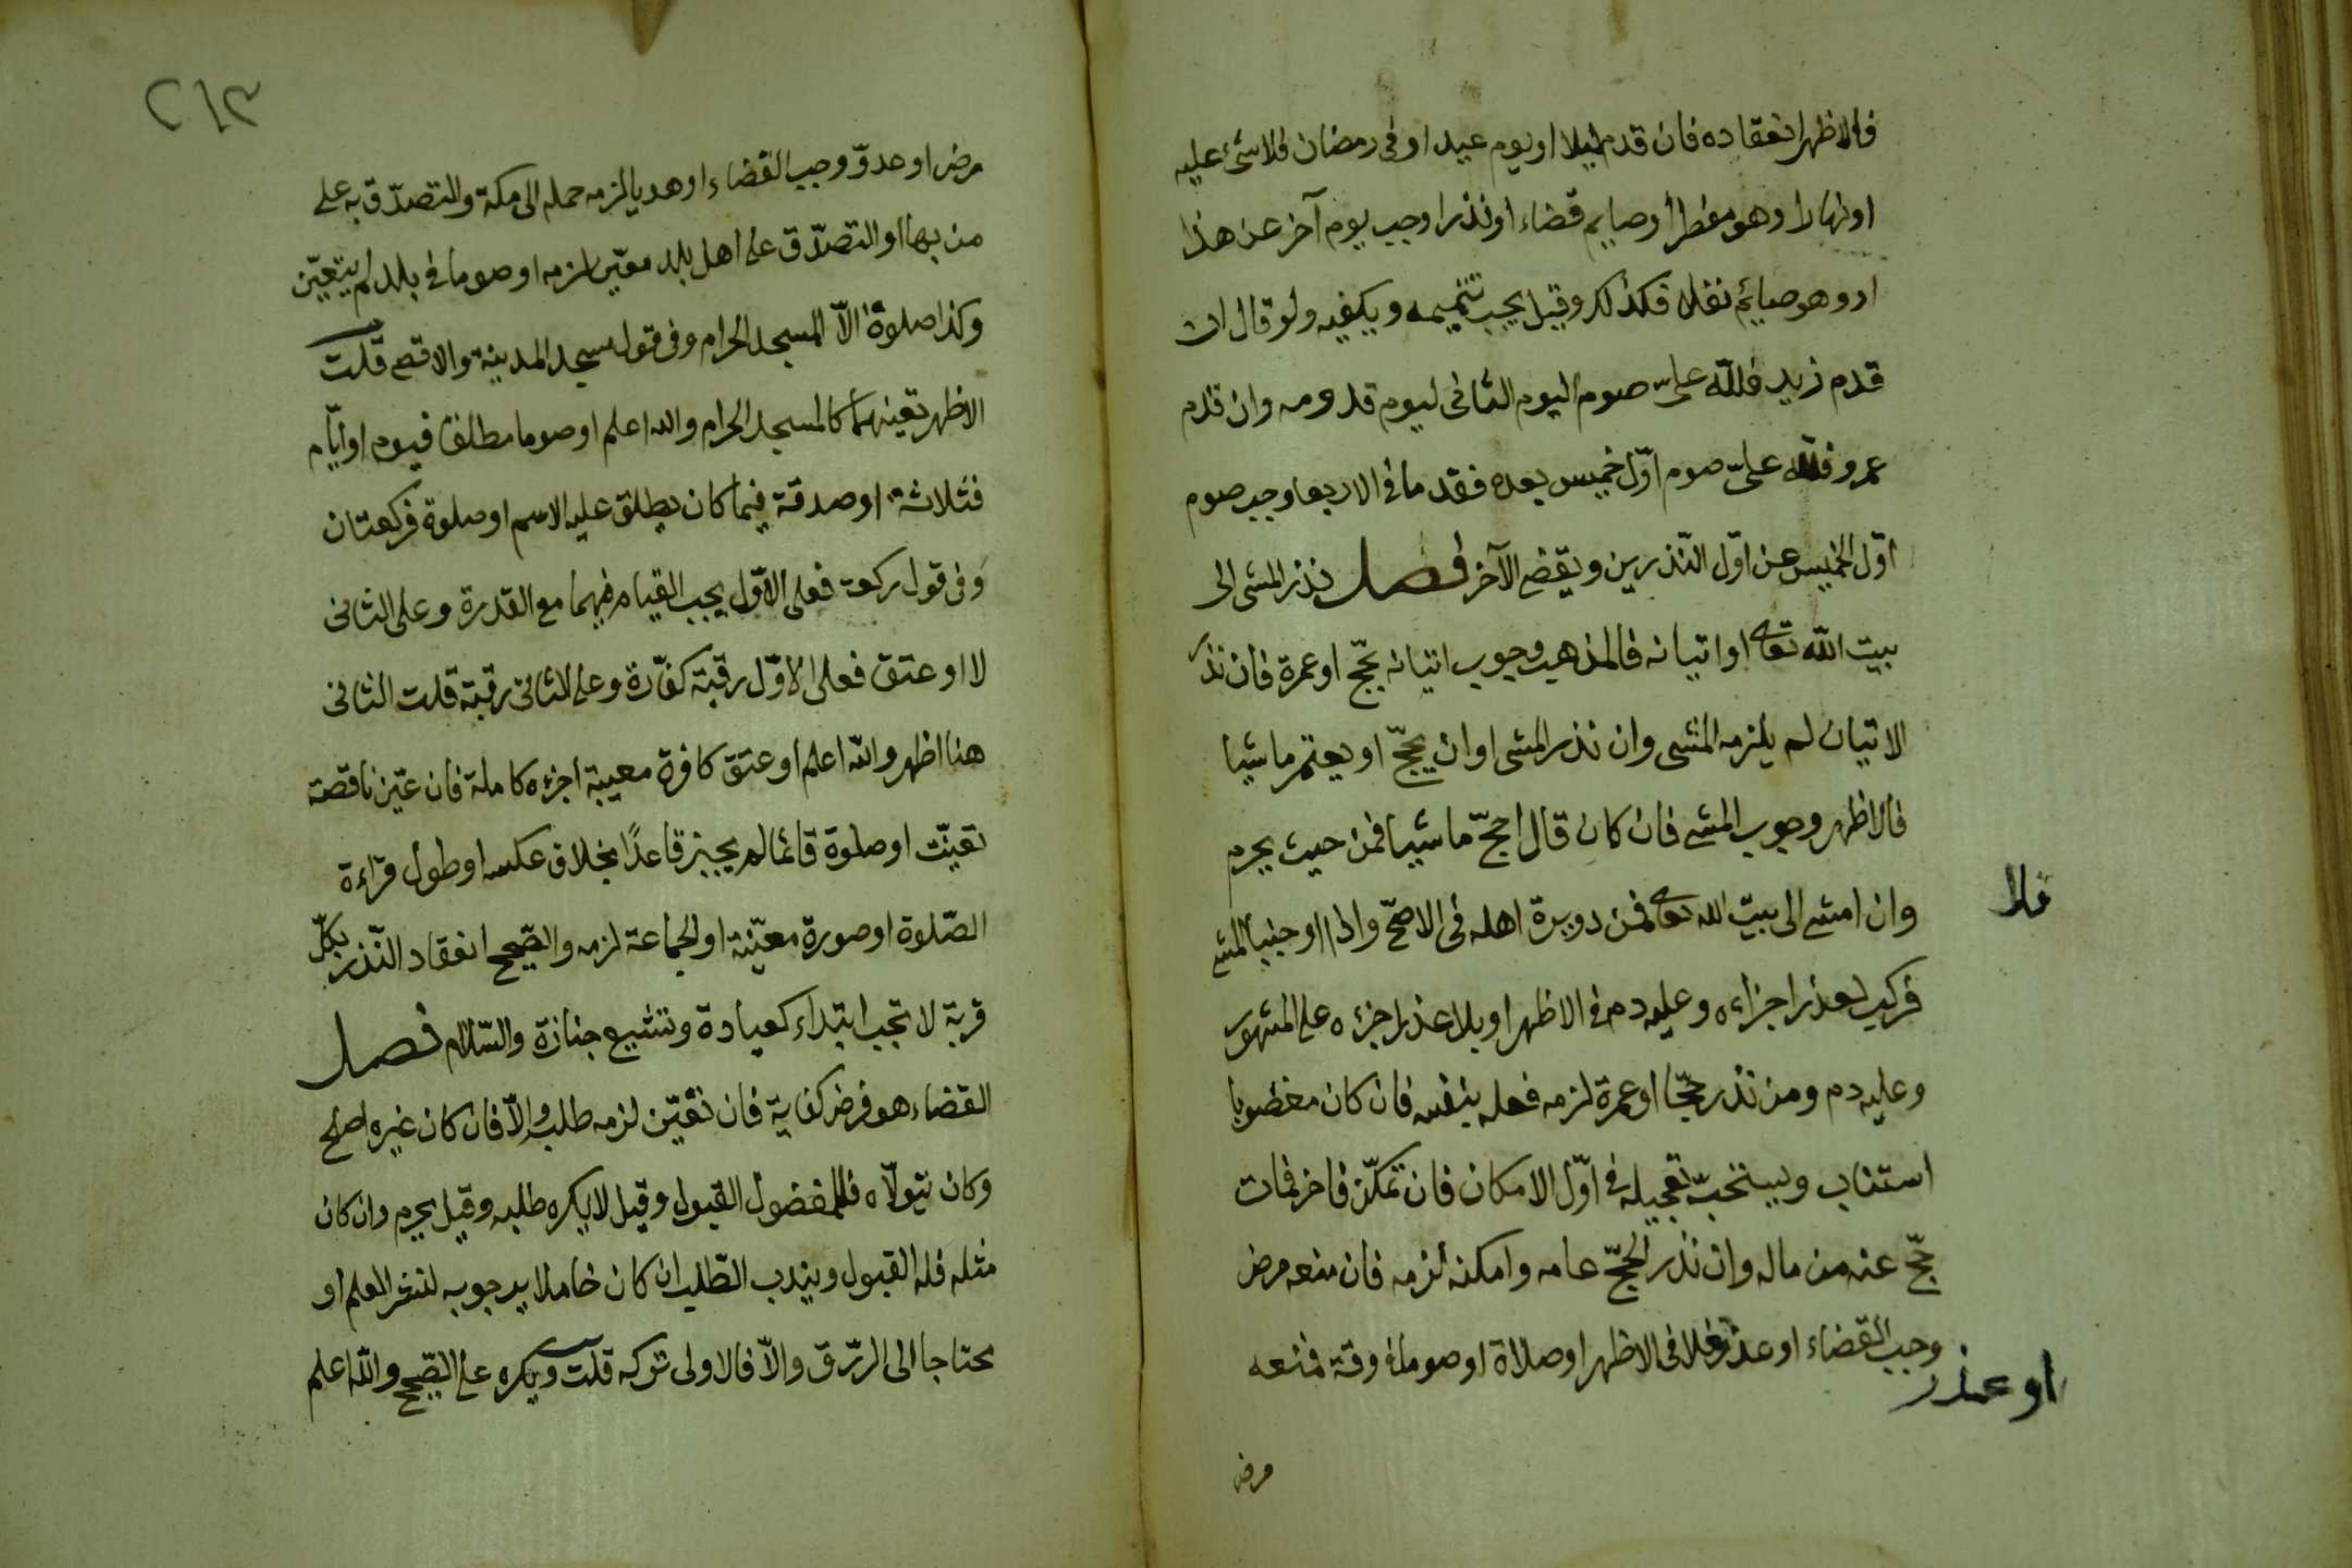 فالاظهر انعقاده فان قدم ليلا او يوم عيد او فى رمضان فلا شئ عليه
او نهارا وهو مفطر أو صايم قضاء او نذرا وجب يوم آخر عن هذا
او وهو صائم نفلا فكذلك وقيل يجب تتميمه ويكفيه ولو قال ان
قدم زيد فلله علىّ صوم اليوم الثانى ليوم قدومه وان قدم
عمرو فلله علىّ صوم اوّل خميس بعده فقدما فى الاربعا وجب صوم
اوّل الخميس عن اوّل النّذرين ويقضى الآخر فصل نذر المشى الى
بيت الله تعالى او اتيانه فالمذهب وجوب اتيانه بحجّ او عمرة فان نذر
الاتيان لم يلزمه المشى وان نذر المشى او ان يحجّ او يعتمر ماشيا
فالاظهر وجوب المشى فان كان قال احجّ ماشيا فمن حيث يحرم
وان امشى الى بيت الله تعالى فمن دويرة اهله فى الاصحّ واذا اوجبنا المشى
فركب لعذر اجزاءه وعليه دم فى الاظهر او بلا عذر اجزءه على المشهور
وعليه دم ومن نذر حجّا او عمرة لزمه فعله بنفسه فان كان مغضوبا
استناب ويستحبّ تعجيله فى اوّل الامكان فان تمكّن فاخر فمات
حجّ عنه من ماله وان نذر الحجّ عامه وامكنه لزمه فان منعه مرض
وجب القضاء او عدوّ فلا فى الاظهر او صلاة او صوما فى وقته فمنعه
فلا
او عذر
مرض
٢١٣
مرض او عدوّ وجب القضاء او هديا لزمه حمله الى مكة والتصدّق به على
من بها او التصدّق على اهل بلد معيّن لزمه او صوما فى بلد لم يتعيّن
وكذا صلوة الاّ المسجد الحرام وفى قول مسجد المدينة والاقصى قلت
الاظهر تعينهما كالمسجد الحرام والله اعلم او صوما مطلقا فيوم او ايّام
فثلاثة او صدقة فيما كان يطلق عليه الاسم او صلوة فركعتان
وفى قول ركعة فعلى الاوّل يجب القيام فيهما مع القدرة وعلى الثانى
لا او عتق فعلى الاوّل رقبة كفّارة وعلى الثانى رقبة قلت الثانى
هنا اظهر والله اعلم او عتق كافرة معيبة اجزءه كاملة فان عيّن ناقصة
تعيّنت او صلوة قائما لم يجز قاعدًا بخلاف عكسه او طول قراءة
الصّلوة او صورة معيّنة او الجماعة لزمه والصّحيح انعقاد النّذر بكلّ
قربة لا تجب ابتداء كعيادة وتشييع جنازة والسّلام فصل
القضاء هو فرض كفاية فان تعيّن لزمه طلبه والاّ فان كان غيره اصلح
وكان يتولاّه فللمفضول القبول وقيل لا يكره طلبه وقيل يحرم وان كان
مثله فله القبول ويندب الطّلب ان كان خاملا يرجو به لنشر العلم او
محتاجا الى الرزق والاّ فالاولى تركه قلت ويكره على الصّحيح والله اعلم